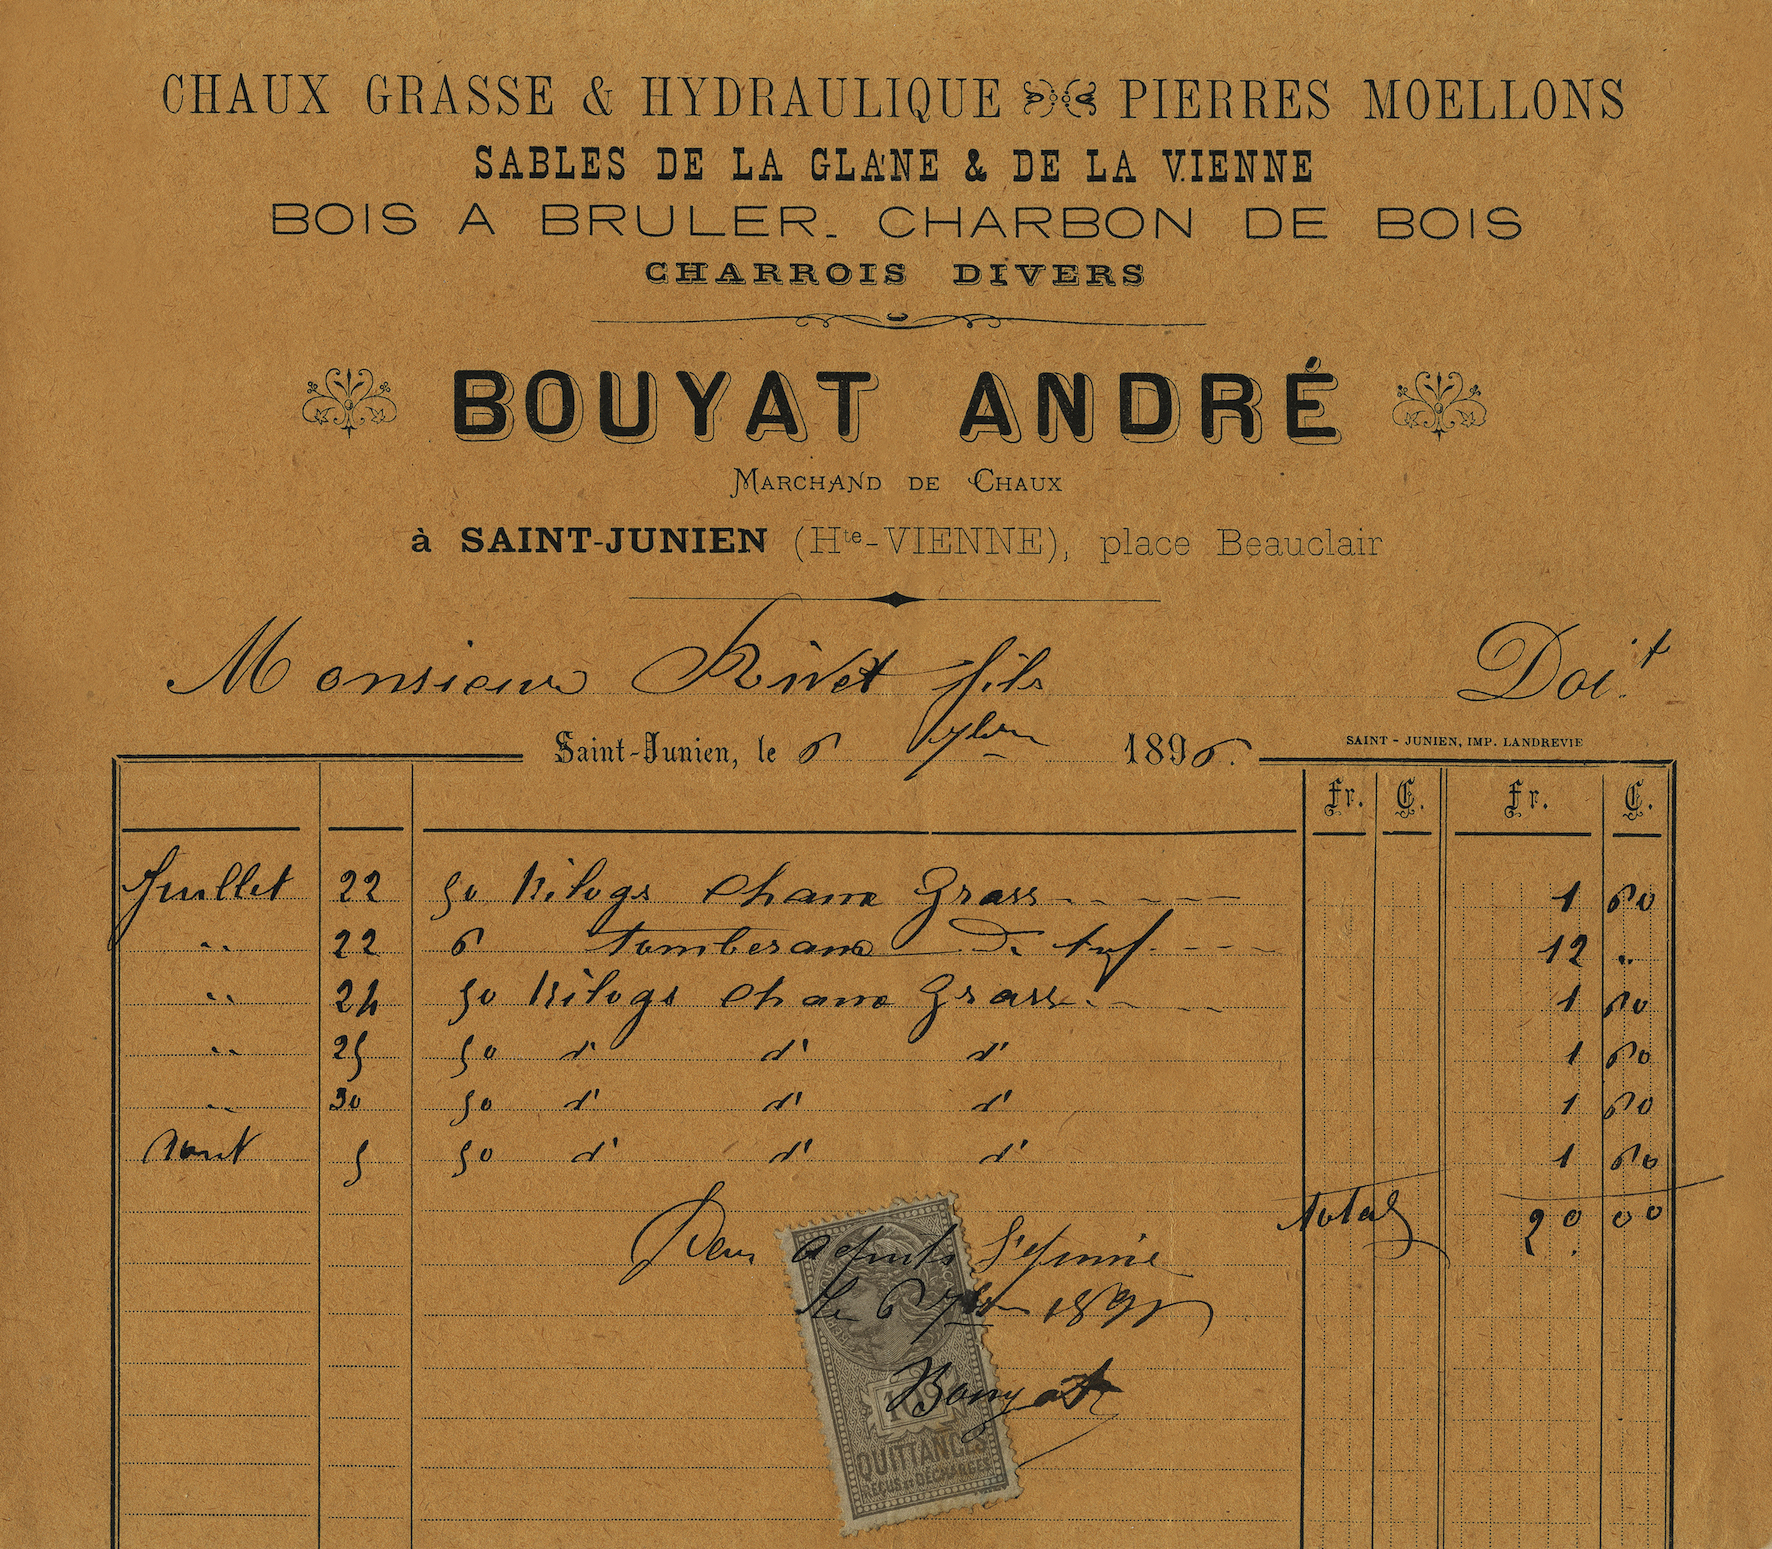 CHAUX GRASSE & HYDRAULIQUE PIERRES MOELLONS
SABLES DE LA GLANE & DE LA VIENNE
BOIS A BRULER - CHARBON DE BOIS
CHARROIS DIVERS
BOUYAT ANDRÉ
MARCHAND DE CHAUX
à SAINT-JUNIEN (Hte-VIENNE), place Beauclair
Monsieur Rivet fils Doit
Saint-Junien, le 6 7bre 1896.
SAINT-JUNIEN, IMP. LANDREVIE
Fr. C. Fr. C.
Juillet 22 50 Kilogs Chaux Grass 1 60
" 22 6 tomberaux De tuf 12 "
" 24 50 Kilogs Chaux Grass 1 60
" 25 50 d° d° d° 1 60
" 30 50 d° d° d° 1 60
Aout 5 50 d° d° d° 1 60
total 20 00
Pour
le 6 7bre 189
Bouyat
10c
QUITTANCES
REÇUS ET DÉCHARGES